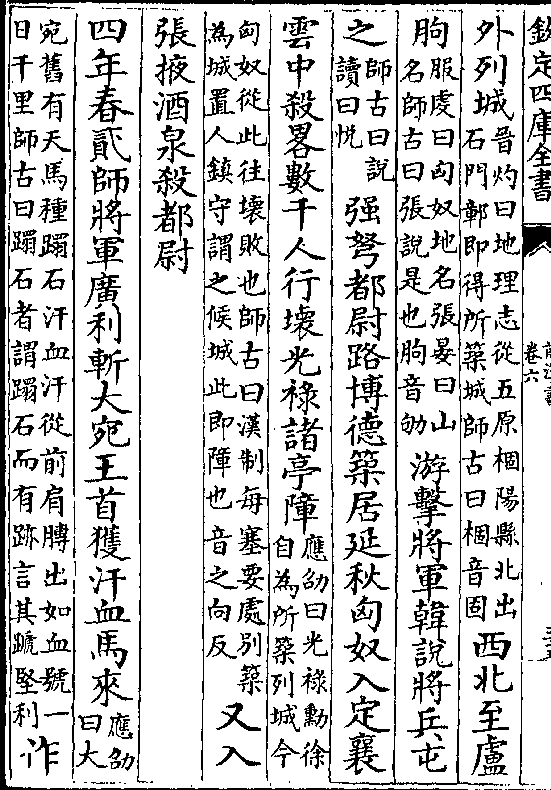 欽定四庫全書
卷六
外列城晉灼曰地理志從五原棝陽縣北出石門鄣即得所築城師古曰棝音固西北至盧
朐服虔曰匈奴地名張晏曰山名師古曰張說是也朐音劬游擊將軍韓說將兵屯
之師古曰說讀曰悅强弩都尉路博德築居延秋匈奴入定襄
雲中殺畧數千人行壞光祿諸亭障應劭曰光祿勳徐自為所築列城今
匈奴從此往壞敗也師古曰漢制每塞要處別築為城置人鎮守謂之候城此即障也音之向反又入
張掖酒泉殺都尉
四年春貳師將軍廣利斬大宛王首獲汗血馬來應劭曰大
宛舊有天馬種蹋石汗血汗從前肩膊出如血號一日千里師古曰蹋石者謂蹋石而有跡言其蹏堅利作